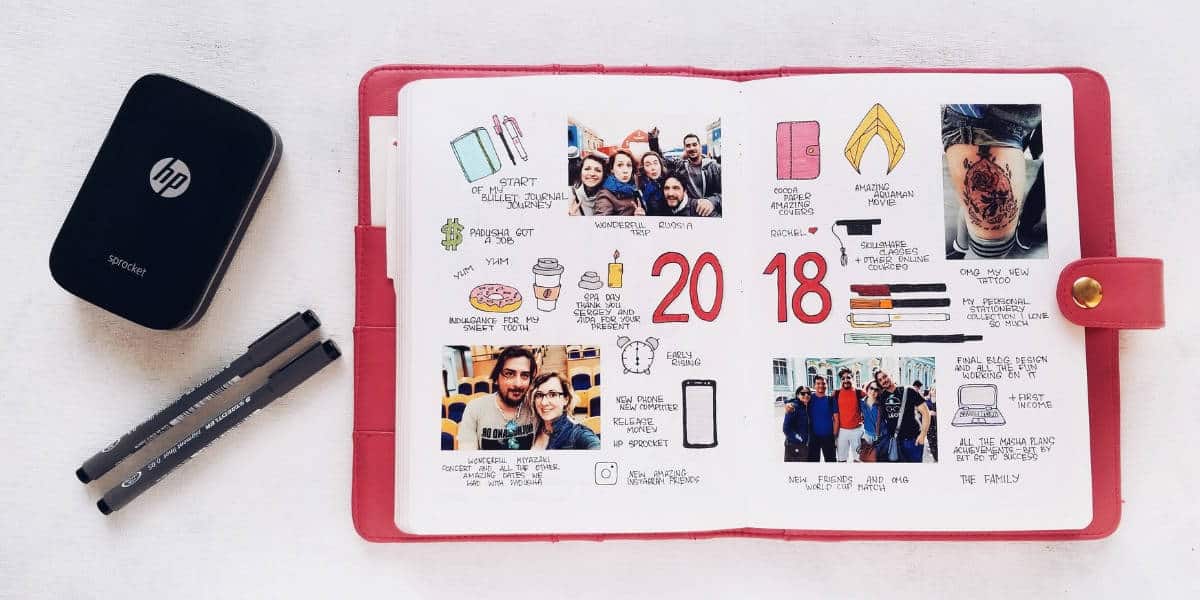 hp
sprocket
STAEDTLER
STAEDTLER
pigment liner 0.05
START
OF MY
BULLET JOURNAL
JOURNEY
WONDERFUL RUSSIA
TRIP
$
PADUSHA GOT
A JOB
YUM YUM
INDULGANCE FOR MY
SWEET TOOTH
SPA DAY
THANK YOU
SERGEY AND
AIDA FOR YOUR
PRESENT
20
EARLY
RISING
NEW PHONE
NEW COMPUTER
RELEASE
MONEY
HP SPROCKET
WONDERFUL MIYAZAKI
CONCERT AND ALL THE OTHER
AMAZING DATES WE
HAD WITH PADUSHA
NEW AMAZING
INSTAGRAM FRIENDS
COCOA
PAPER
AMAZING
COVERS
AMAZING
AQUAMAN
MOVIE
RACHEL
SKILLSHARE
CLASSES
+ OTHER ONLINE
COURCES
OMG MY NEW
TATTOO
18
MY PERSONAL
STATIONERY
COLLECTION I LOVE
SO MUCH
FINAL BLOG DESIGN
AND ALL THE FUN
WORKING ON IT
+ FIRST
INCOME
ALL THE MASHA PLANS
ACHIEVEMENTS - BIT BY
BIT GO TO SUCCESS
NEW FRIENDS AND OMG
WORLD CUP MATCH
THE FAMILY